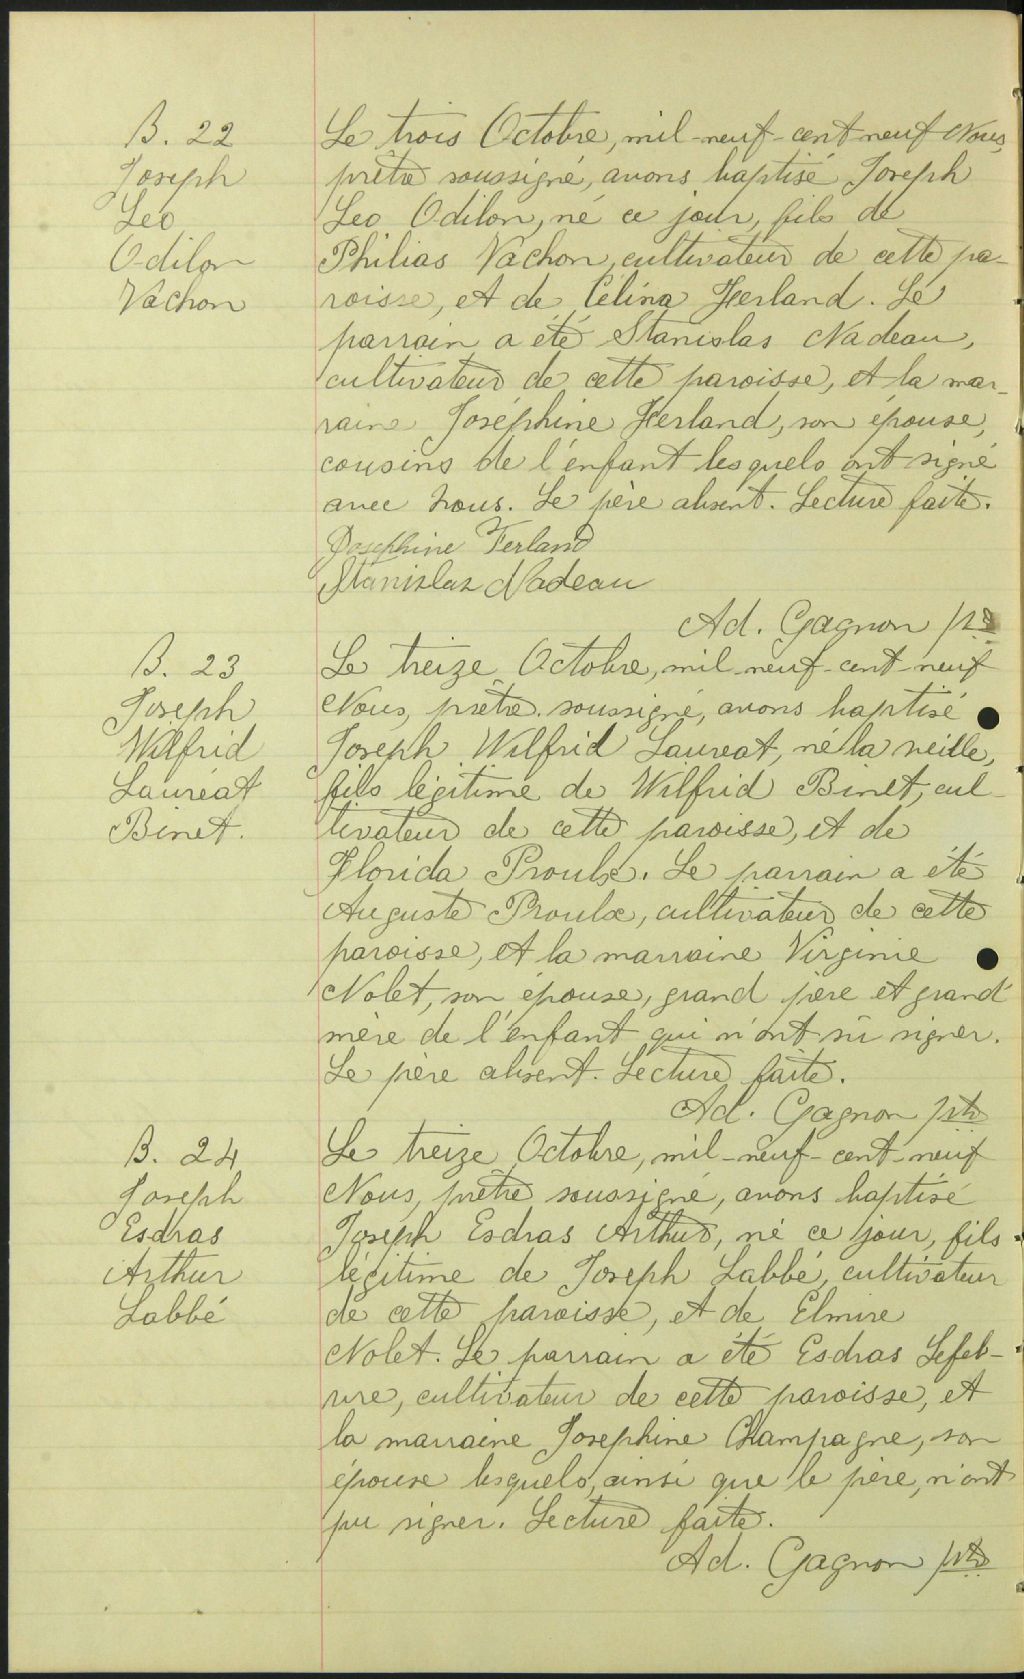 B. 22
Joseph
Leo
Odilon
Vachon
Le trois Octobre, mil-neuf-cent neuf Nous,
prêtre soussigné, avons baptisé Joseph
Leo Odilon, né ce jour, fils de
Philias Vachon, cultivateur de cette pa-
roisse, et de Célina Ferland. Le
parrain a été Stanislas Nadeau,
cultivateur de cette paroisse, et la mar-
raine Joséphine Ferland, son épouse,
cousins de l'enfant lesquels ont signé
avec nous. Le père absent. Lecture faite.
Josephine Ferland
Stanislas Nadeau
Ad. Gagnon ptre
B. 23
Joseph
Wilfrid
Lauréat
Binet.
Le treize Octobre, mil-neuf-cent-neuf
Nous, prêtre soussigné, avons baptisé
Joseph Wilfrid Laureat, né la veille,
fils légitime de Wilfrid Binet, cul-
tivateur de cette paroisse, et de
Florida Proulx. Le parrain a été
Auguste Proulx, cultivateur de cette
paroisse, et la marraine Virginie
Nolet, son épouse, grand père et grand'
mère de l'enfant qui n'ont su signer.
Le père absent. Lecture faite.
Ad. Gagnon ptre
B. 24
Joseph
Esdras
Arthur
Labbé
Le treize Octobre, mil-neuf-cent-neuf
Nous, prêtre soussigné, avons baptisé
Joseph Esdras Arthur, né ce jour, fils
légitime de Joseph Labbé, cultivateur
de cette paroisse, et de Elmire
Nolet. Le parrain a été Esdras Lefeb-
vre, cultivateur de cette paroisse, et
la marraine Josephine Champagne, son
épouse lesquels, ainsi que le père, n'ont
pu signer. Lecture faite.
Ad. Gagnon ptre